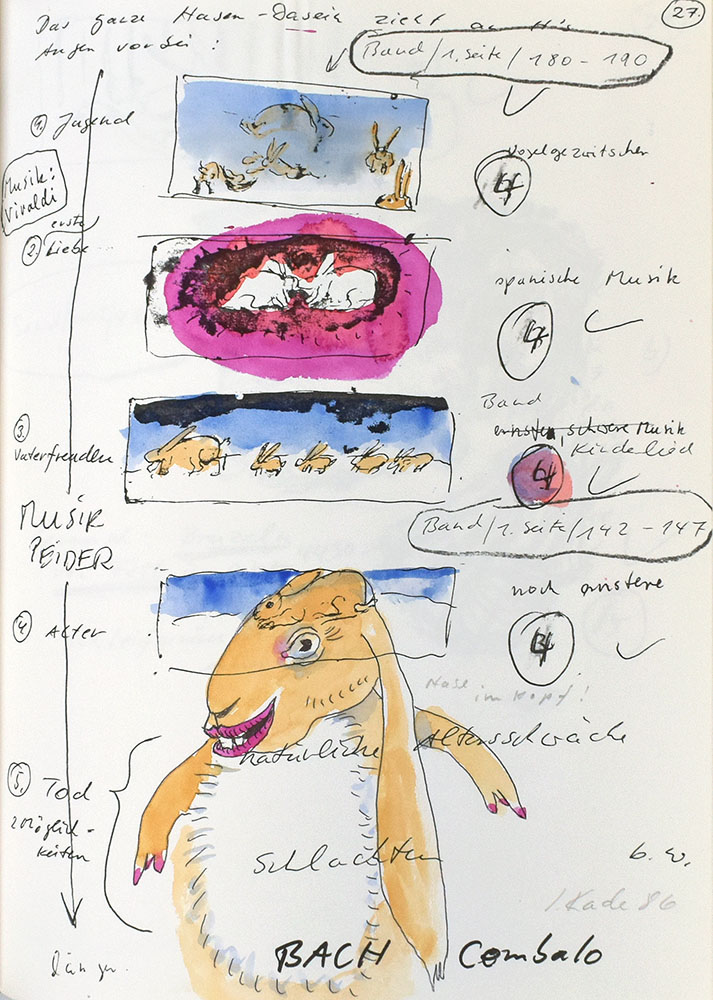 27.
Das ganze Hasen-Dasein zieht an H's
Augen vorbei:
Band/1. Seite/180-190
1. Jugend
Vogelgezwitscher
Musik:
Vivaldi
erste
2. Liebe
spanische Musik
Band
3.
Vaterfreuden
ernste, schwere Musik
Kinderlied
Band/1. Seite/142-147
MUSIK
noch
4. Alter
Hase
im Kopf!
natürliche Altersschwäche
5. Tod
2 Möglich-
keiten
Schlachten
b. w.
I. Kade 86
BACH Cembalo